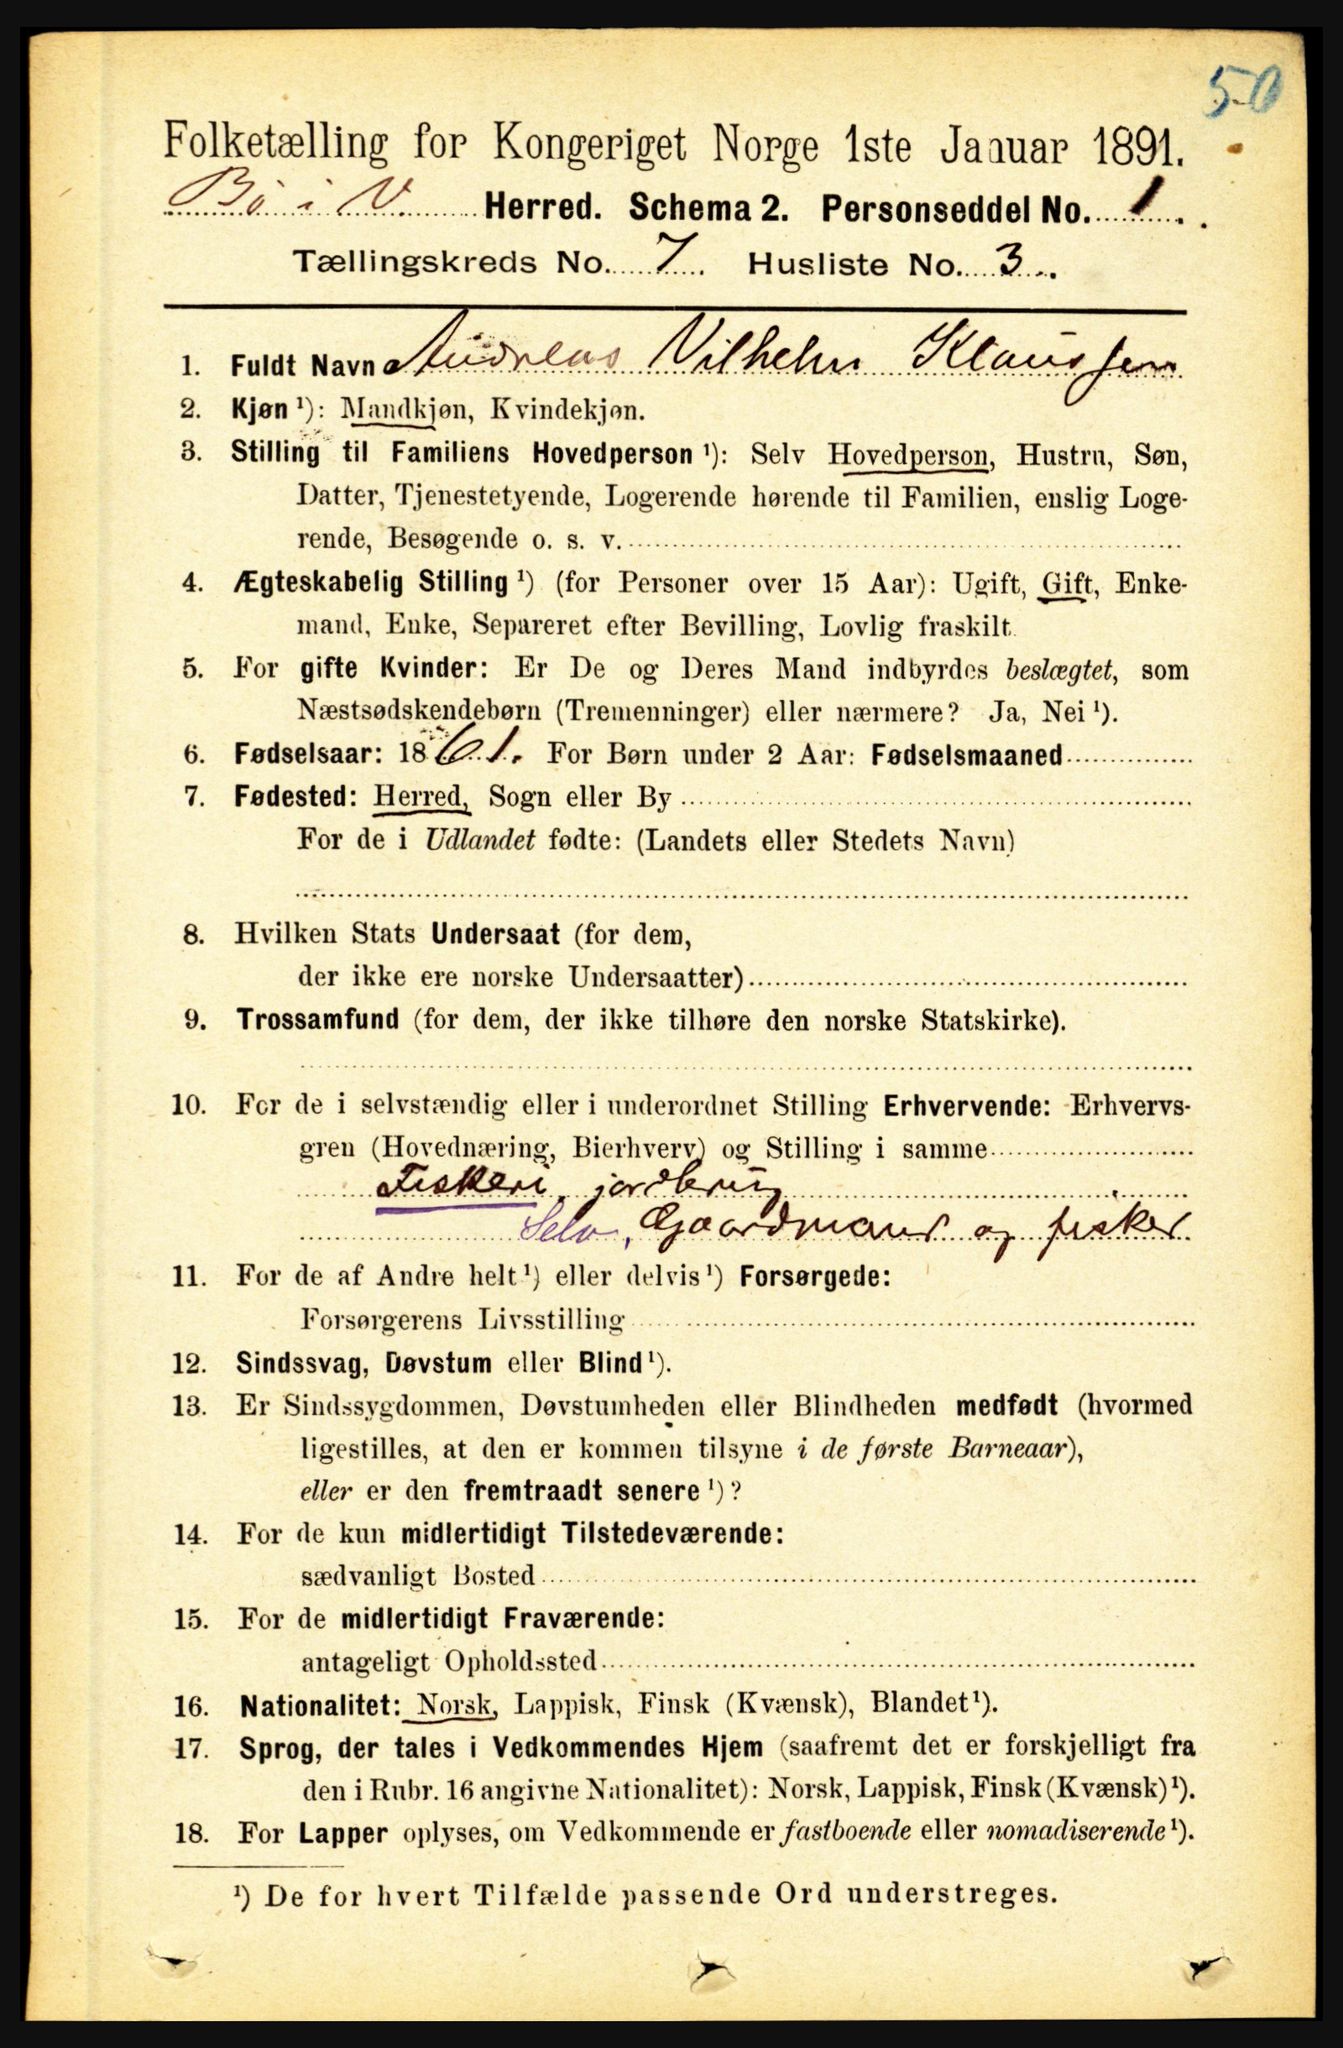 50
Folketælling for Kongeriget Norge 1ste Januar 1891.
Bø i V. Herred. Schema 2. Personseddel No. 1.
Tællingskreds No. 7. Husliste No. 3.
1. Fuldt Navn Andreas Vilhelm Klaussen
2. Kjøn ¹): Mandkjøn, Kvindekjøn.
3. Stilling til Familiens Hovedperson ¹): Selv Hovedperson, Hustru, Søn,
Datter, Tjenestetyende, Logerende hørende til Familien, enslig Loge-
rende, Besøgende o. s. v.
4. Ægteskabelig Stilling ¹) (for Personer over 15 Aar): Ugift, Gift, Enke-
mand, Enke, Separeret efter Bevilling, Lovlig fraskilt.
5. For gifte Kvinder: Er De og Deres Mand indbyrdes beslægtet, som
Næstsødskendebørn (Tremenninger) eller nærmere? Ja, Nei ¹).
6. Fødselsaar: 1861. For Børn under 2 Aar: Fødselsmaaned
7. Fødested: Herred, Sogn eller By
For de i Udlandet fødte: (Landets eller Stedets Navn)
8. Hvilken Stats Undersaat (for dem,
der ikke ere norske Undersaatter)
9. Trossamfund (for dem, der ikke tilhøre den norske Statskirke).
10. For de i selvstændig eller i underordnet Stilling Erhvervende: Erhvervs-
gren (Hovednæring, Bierhverv) og Stilling i samme
Fiskeri, jordbrug
Selv, Gaardmand og fisker
11. For de af Andre helt ¹) eller delvis ¹) Forsørgede:
Forsørgerens Livsstilling
12. Sindssvag, Døvstum eller Blind ¹).
13. Er Sindssygdommen, Døvstumheden eller Blindheden medfødt (hvormed
ligestilles, at den er kommen tilsyne i de første Barneaar),
eller er den fremtraadt senere ¹)?
14. For de kun midlertidigt Tilstedeværende:
sædvanligt Bosted
15. For de midlertidigt Fraværende:
antageligt Opholdssted
16. Nationalitet: Norsk, Lappisk, Finsk (Kvænsk), Blandet ¹).
17. Sprog, der tales i Vedkommendes Hjem (saafremt det er forskjelligt fra
den i Rubr. 16 angivne Nationalitet): Norsk, Lappisk, Finsk (Kvænsk) ¹).
18. For Lapper oplyses, om Vedkommende er fastboende eller nomadiserende ¹).
¹) De for hvert Tilfælde passende Ord understreges.